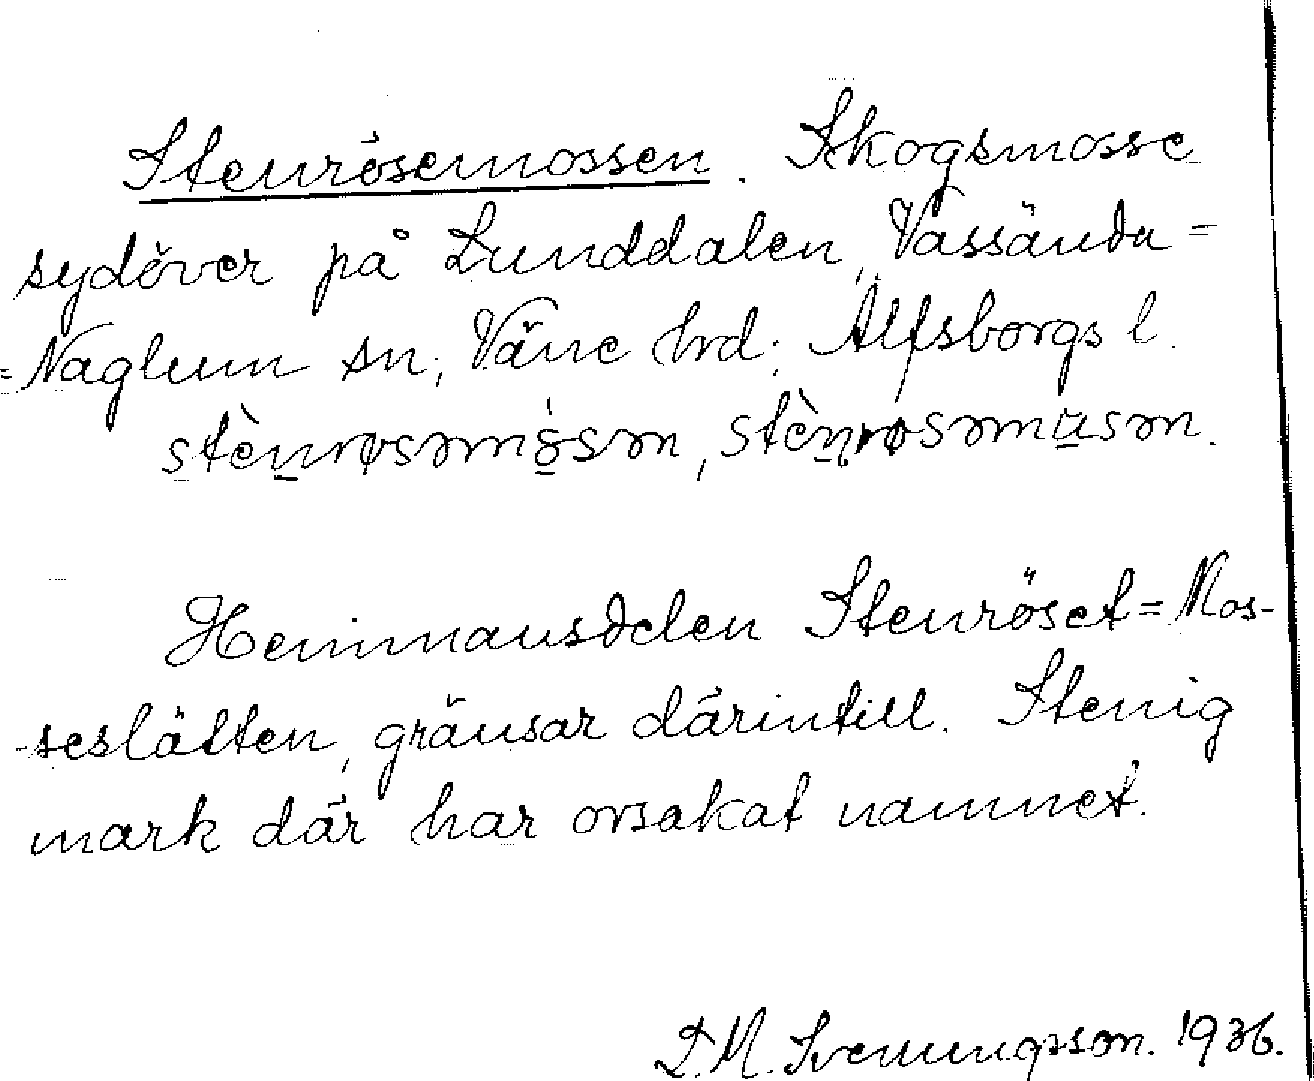 Stenrösemossen. Skogsmosse
sydöver på Lunddalen, Vassända-
-Naglum sn, Väne hrd, Älfsborgs l.
stènrøsəmòsən, stènrøsəmusən.
Hemmansdelen Stenröset=Mos-
-seslätten, gränsar därintill. Stenig
mark där har orsakat namnet.
D. M. Svenungsson. 1936.